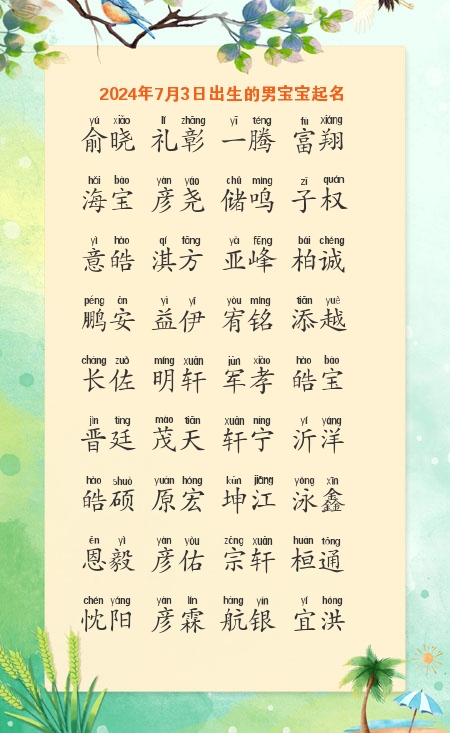 2024年7月3日出生的男宝宝起名
yú xiǎo lǐ zhāng yī téng fù xiáng
俞晓 礼彰 一腾 富翔
hǎi bǎo yàn yáo chǔ míng zǐ quán
海宝 彦尧 储鸣 子权
yì hào qí fāng yà fēng bǎi chéng
意皓 淇方 亚峰 柏诚
péng ān yì yī yòu míng tiān yuè
鹏安 益伊 宥铭 添越
cháng zuǒ míng xuān jūn xiào hào bǎo
长佐 明轩 军孝 皓宝
jìn tíng mào tiān xuān níng yí yáng
晋廷 茂天 轩宁 沂洋
hào shuò yuán hóng kūn jiāng yǒng xīn
皓硕 原宏 坤江 泳鑫
ēn yì yàn yòu zōng xuān huán tōng
恩毅 彦佑 宗轩 桓通
chén yáng yàn lín háng yín yí hóng
忱阳 彦霖 航银 宜洪